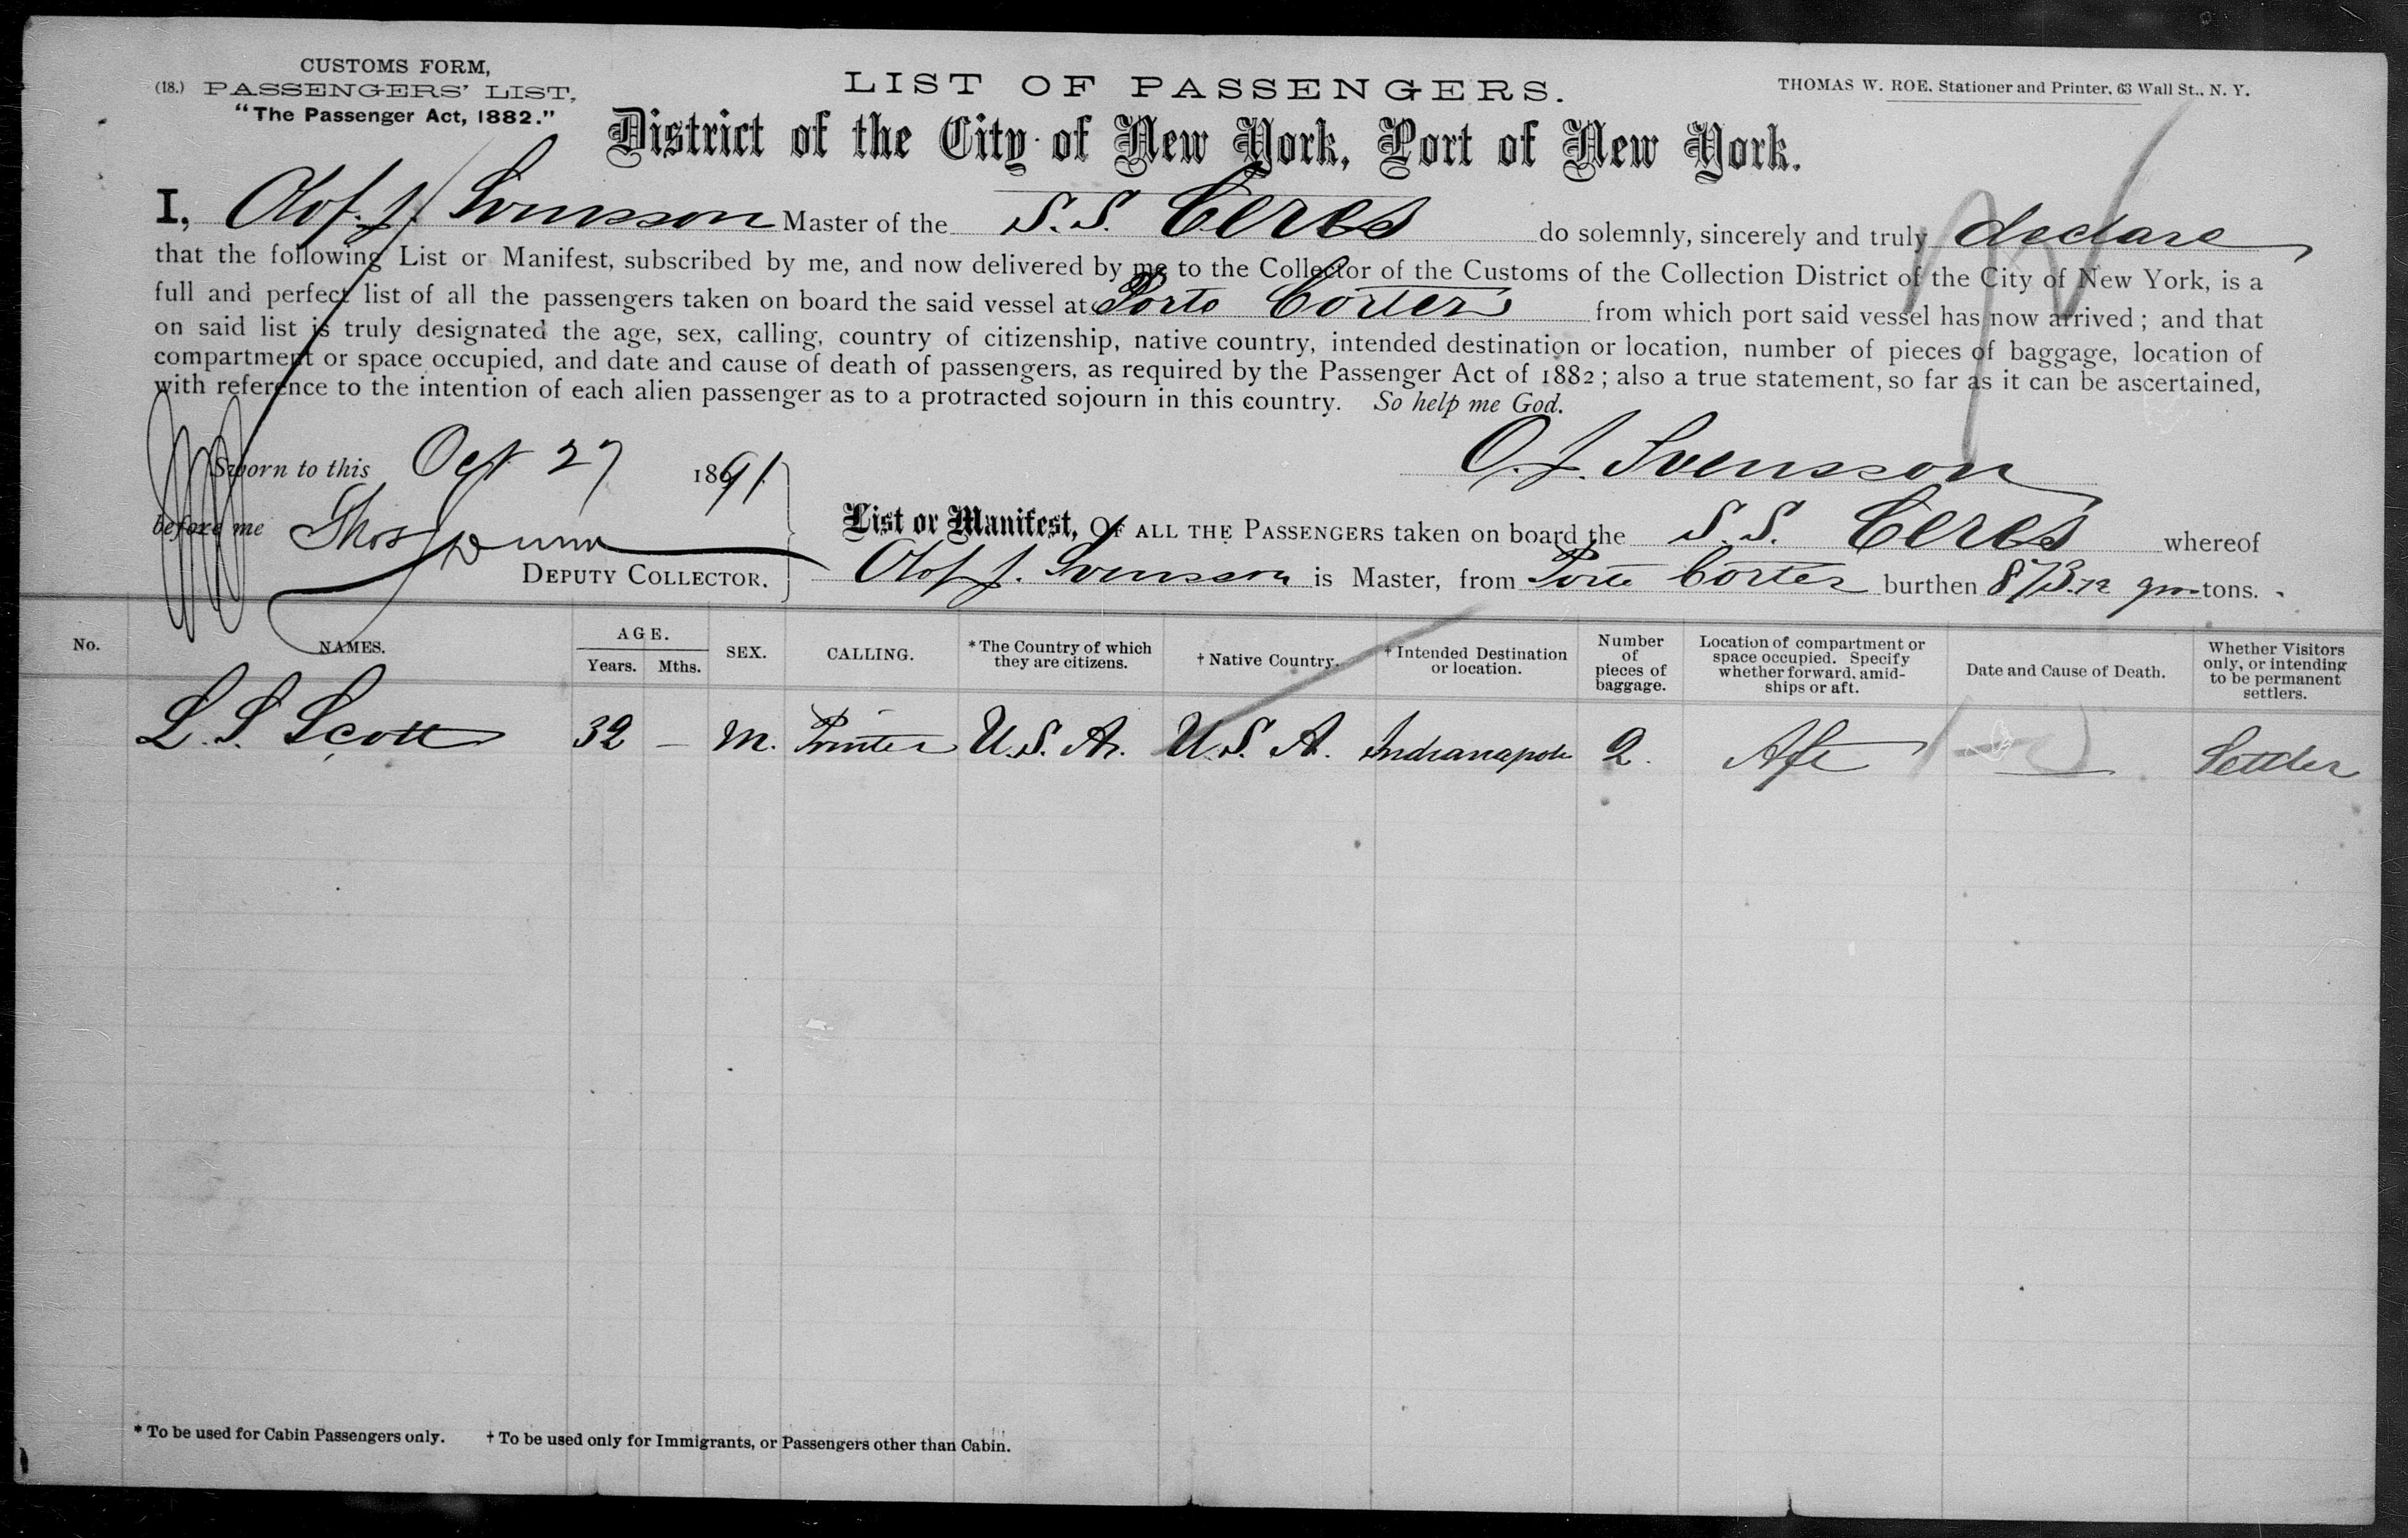 CUSTOMS FORM,
(18.) PASSENGERS' LIST,
"The Passenger Act, 1882."
LIST OF PASSENGERS.
THOMAS W. ROE. Stationer and Printer, 63 Wall St., N. Y.
District of the City of New York, Port of New York.
I, Olof. J. Svensson Master of the S.S. Ceres do solemnly, sincerely and truly declare
that the following List or Manifest, subscribed by me, and now delivered by me to the Collector of the Customs of the Collection District of the City of New York, is a
full and perfect list of all the passengers taken on board the said vessel at Porto Cortez from which port said vessel has now arrived; and that
on said list is truly designated the age, sex, calling, country of citizenship, native country, intended destination or location, number of pieces of baggage, location of
compartment or space occupied, and date and cause of death of passengers, as required by the Passenger Act of 1882; also a true statement, so far as it can be ascertained,
with reference to the intention of each alien passenger as to a protracted sojourn in this country. So help me God.
Sworn to this Oct 27 1891.
O. J. Svensson
before me Thos Dunn
DEPUTY COLLECTOR.
List or Manifest, OF ALL THE PASSENGERS taken on board the S.S. Ceres whereof
Olof J. Svensson is Master, from Porto Cortez burthen 873.72 tons.
No. NAMES. AGE. Years. Mths. SEX. CALLING. *The Country of which they are citizens. †Native Country. †Intended Destination or location. Number of pieces of baggage. Location of compartment or space occupied. Specify whether forward, amidships or aft. Date and Cause of Death. Whether Visitors only, or intending to be permanent settlers.
L. S. Scott 32 — M. Printer U.S.A. U.S.A. Indianapolis 2. Aft — Settler
* To be used for Cabin Passengers only. † To be used only for Immigrants, or Passengers other than Cabin.